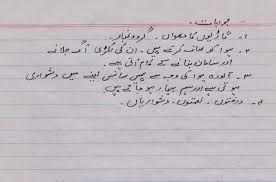 جوابات:-
۱- گاڑیوں کا دھواں۔ گردوغبار
۲- ہوا کو صاف کرتے ہیں۔ ان کی لکڑی آگ جلانے
اور سامان بنانے کے کام آتی ہے۔
۳- آلودہ ہوا کی وجہ سے ہمیں سانس لینے میں دشواری
ہوتی ہے اور ہم بیمار ہو جاتے ہیں۔
۴- درختوں۔ نعمتوں۔ دشواریاں۔